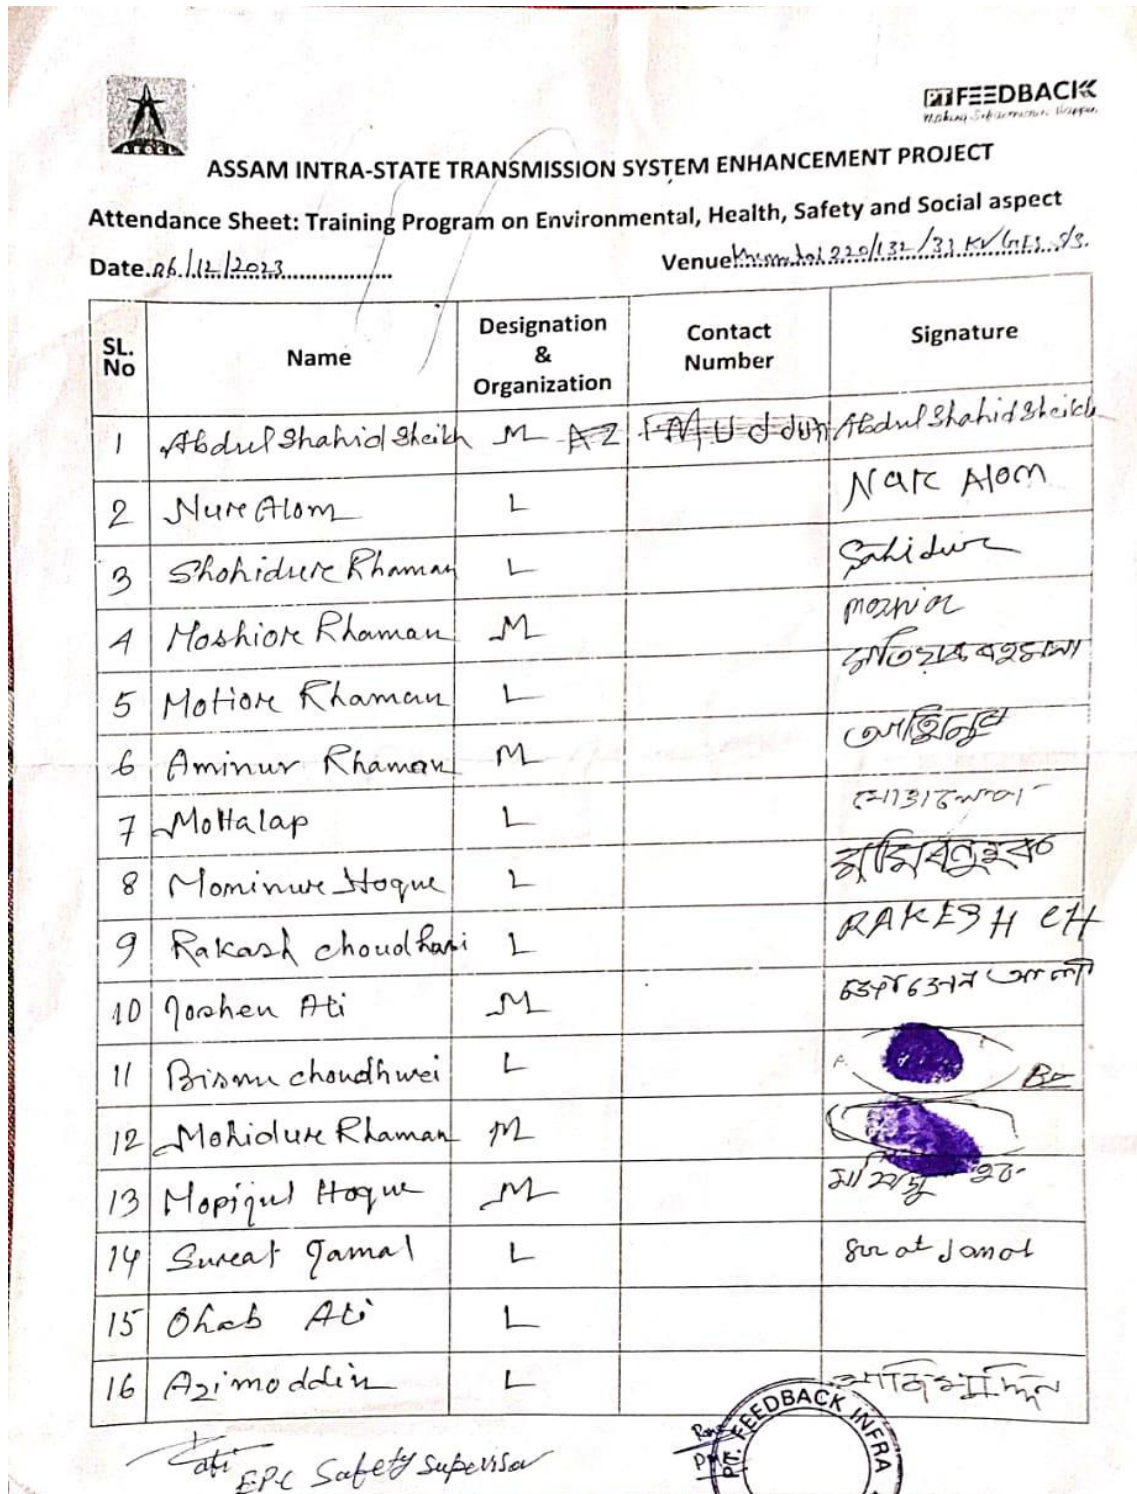 AEGCL
PTFEEDBACK
Making Infrastructure Happen
ASSAM INTRA-STATE TRANSMISSION SYSTEM ENHANCEMENT PROJECT
Attendance Sheet: Training Program on Environmental, Health, Safety and Social aspect
Date.06/12/2023 Venue Khumtai 220/132/33 KV GIS S/S.
SL. No Name Designation & Organization Contact Number Signature
1 Abdul Shahid Sheikh M Abdul Shahid Sheikh
2 Nure Alom L Nare Alom
3 Shohidure Rhaman L Sahidur
4 Moshiore Rhaman M
5 Motiore Rhaman L
6 Aminur Rhaman M
7 Mottalap L
8 Mominure Hoque L
9 Rakash choudhari L RAKESH CH
10 Joshen Ati M
11 Bismu choudhwei L
12 Mohidure Rhaman M
13 Mopijul Hoque M
14 Sureat Jamal L Sur at Jamal
15 Ohab Ati L
16 Azimoddin L
EPC Safety Supervisor
PT. FEEDBACK INFRA